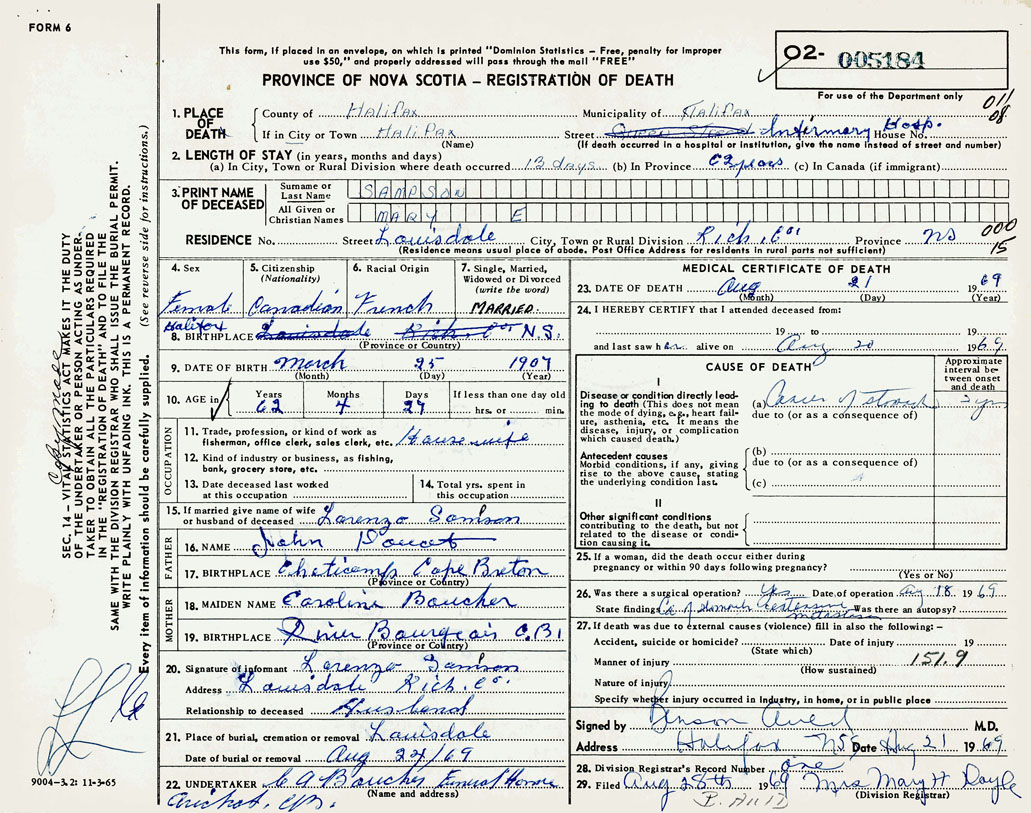 FORM 6
This form, if placed in an envelope, on which is printed "Dominion Statistics – Free, penalty for improper
use $50," and properly addressed will pass through the mail "FREE"
PROVINCE OF NOVA SCOTIA – REGISTRATION OF DEATH
02- 005184
For use of the Department only
011
08
1. PLACE OF DEATH
County of Halifax Municipality of Halifax
If in City or Town Halifax (Name) Street Infirmary Hosp. House No.
(If death occurred in a hospital or institution, give the name instead of street and number)
2. LENGTH OF STAY (in years, months and days)
(a) In City, Town or Rural Division where death occurred 13 days (b) In Province 62 years (c) In Canada (if immigrant)
3. PRINT NAME OF DECEASED
Surname or Last Name SAMPSON
All Given or Christian Names MARY E
RESIDENCE No. Street Louisdale City, Town or Rural Division Rich. Co. Province NS
000
15
(Residence means usual place of abode. Post Office Address for residents in rural parts not sufficient)
4. Sex Female
5. Citizenship (Nationality) Canadian
6. Racial Origin French
7. Single, Married, Widowed or Divorced (write the word) MARRIED.
8. BIRTHPLACE Halifax Louisdale Rich. Co N.S.
(Province or Country)
9. DATE OF BIRTH March 25 1907
(Month) (Day) (Year)
10. AGE in Years 62 Months 4 Days 27 If less than one day old hrs. or min.
OCCUPATION
11. Trade, profession, or kind of work as fisherman, office clerk, sales clerk, etc. Housewife
12. Kind of industry or business, as fishing, bank, grocery store, etc.
13. Date deceased last worked at this occupation
14. Total yrs. spent in this occupation
15. If married give name of wife or husband of deceased Lorenzo Samson
FATHER
16. NAME John
17. BIRTHPLACE Cheticamp Cape Breton
(Province or Country)
MOTHER
18. MAIDEN NAME Caroline Boucher
19. BIRTHPLACE River Bourgeois C.B.
(Province or Country)
20. Signature of informant Lorenzo Samson
Address Louisdale Rich. Co.
Relationship to deceased Husband
21. Place of burial, cremation or removal Louisdale
Date of burial or removal Aug 24/69
22. UNDERTAKER C A Boucher Funeral Home
(Name and address)
Arichat, C.B.
MEDICAL CERTIFICATE OF DEATH
23. DATE OF DEATH Aug 21 1969
(Month) (Day) (Year)
24. I HEREBY CERTIFY that I attended deceased from:
19 to
19
and last saw her alive on Aug 20 1969
CAUSE OF DEATH
Approximate interval between onset and death
I
Disease or condition directly leading to death (This does not mean the mode of dying, e.g., heart failure, asthenia, etc. It means the disease, injury, or complication which caused death.)
(a) Cancer of stomach
due to (or as a consequence of)
Antecedent causes
Morbid conditions, if any, giving rise to the above cause, stating the underlying condition last.
(b)
due to (or as a consequence of)
(c)
II
Other significant conditions contributing to the death, but not related to the disease or condition causing it.
25. If a woman, did the death occur either during pregnancy or within 90 days following pregnancy?
(Yes or No)
26. Was there a surgical operation? yes Date of operation Aug 18 1969
State findings Ca of stomach extensive metastases Was there an autopsy?
27. If death was due to external causes (violence) fill in also the following: –
Accident, suicide or homicide? Date of injury 19
(State which)
Manner of injury 151.9
(How sustained)
Nature of injury
Specify whether injury occurred in industry, in home, or in public place
Signed by Benson M.D.
Address Halifax NS Date Aug 21 1969
28. Division Registrar's Record Number one
29. Filed Aug 28th 1969 Mrs Mary H Doyle
(Division Registrar)
SEC. 14 – VITAL STATISTICS ACT MAKES IT THE DUTY
OF THE UNDERTAKER OR PERSON ACTING AS UNDER-
TAKER TO OBTAIN ALL THE PARTICULARS REQUIRED
IN THE "REGISTRATION OF DEATH" AND TO FILE THE
SAME WITH THE DIVISION REGISTRAR WHO SHALL ISSUE THE BURIAL PERMIT.
WRITE PLAINLY WITH UNFADING INK. THIS IS A PERMANENT RECORD.
Every item of information should be carefully supplied. (See reverse side for instructions.)
9004-3.2: 11-3-65